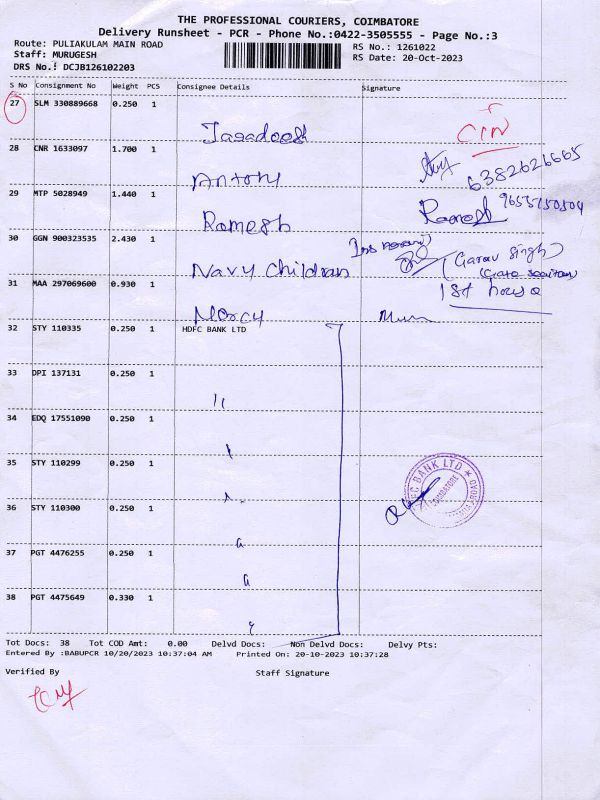 THE PROFESSIONAL COURIERS, COIMBATORE
Delivery Runsheet - PCR - Phone No.:0422-3505555 - Page No.:3
Route: PULIAKULAM MAIN ROAD
RS No.: 1261022
Staff: MURUGESH
RS Date: 20-Oct-2023
DRS No.: DCJB126102203
S No Consignment No Weight PCS Consignee Details Signature
27 SLM 330889668 0.250 1
Jagadeesh
28 CNR 1633097 1.700 1
6382626665
Antony
29 MTP 5028949 1.440 1
9655150504
Ramesh Ramesh
30 GGN 900323535 2.430 1
Navy Children
(Garav Singh)
31 MAA 297069600 0.930 1
1st house
Mercy
32 STY 110335 0.250 1 HDFC BANK LTD
33 DPI 137131 0.250 1
34 EDQ 17551090 0.250 1
35 STY 110299 0.250 1
HDFC BANK LTD
COIMBATORE
36 STY 110300 0.250 1
37 PGT 4476255 0.250 1
38 PGT 4475649 0.330 1
Tot Docs: 38 Tot COD Amt: 0.00 Delvd Docs: Non Delvd Docs: Delvy Pts:
Entered By :BABUPCR 10/20/2023 10:37:04 AM Printed On: 20-10-2023 10:37:28
Verified By Staff Signature